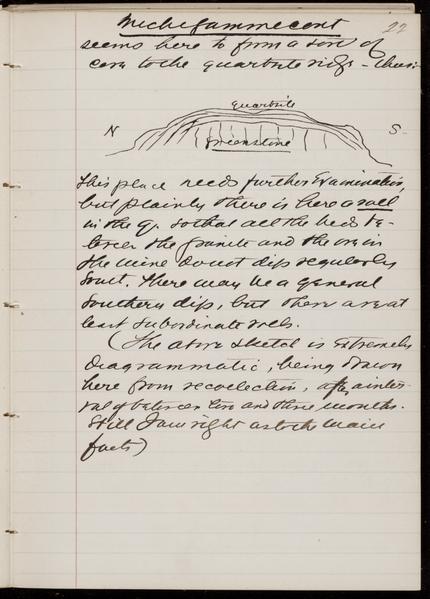 Michigamme cont
22
seems here to form a sort of
core to the quartzite ridge - thus:
quartzite
N
Greenstone
S.
This place needs further Examination,
but plainly there is here a roll
in the q. so that all the beds be-
tween the granite and the ore in
the mine do not dip regularly
South. There may be a general
Southern dip, but there are at
least subordinate rolls.
(The above sketch is Extremely
Diagrammatic, being drawn
here from recollection, after an inter-
val of between two and three months.
Still I am right as to the main
facts)